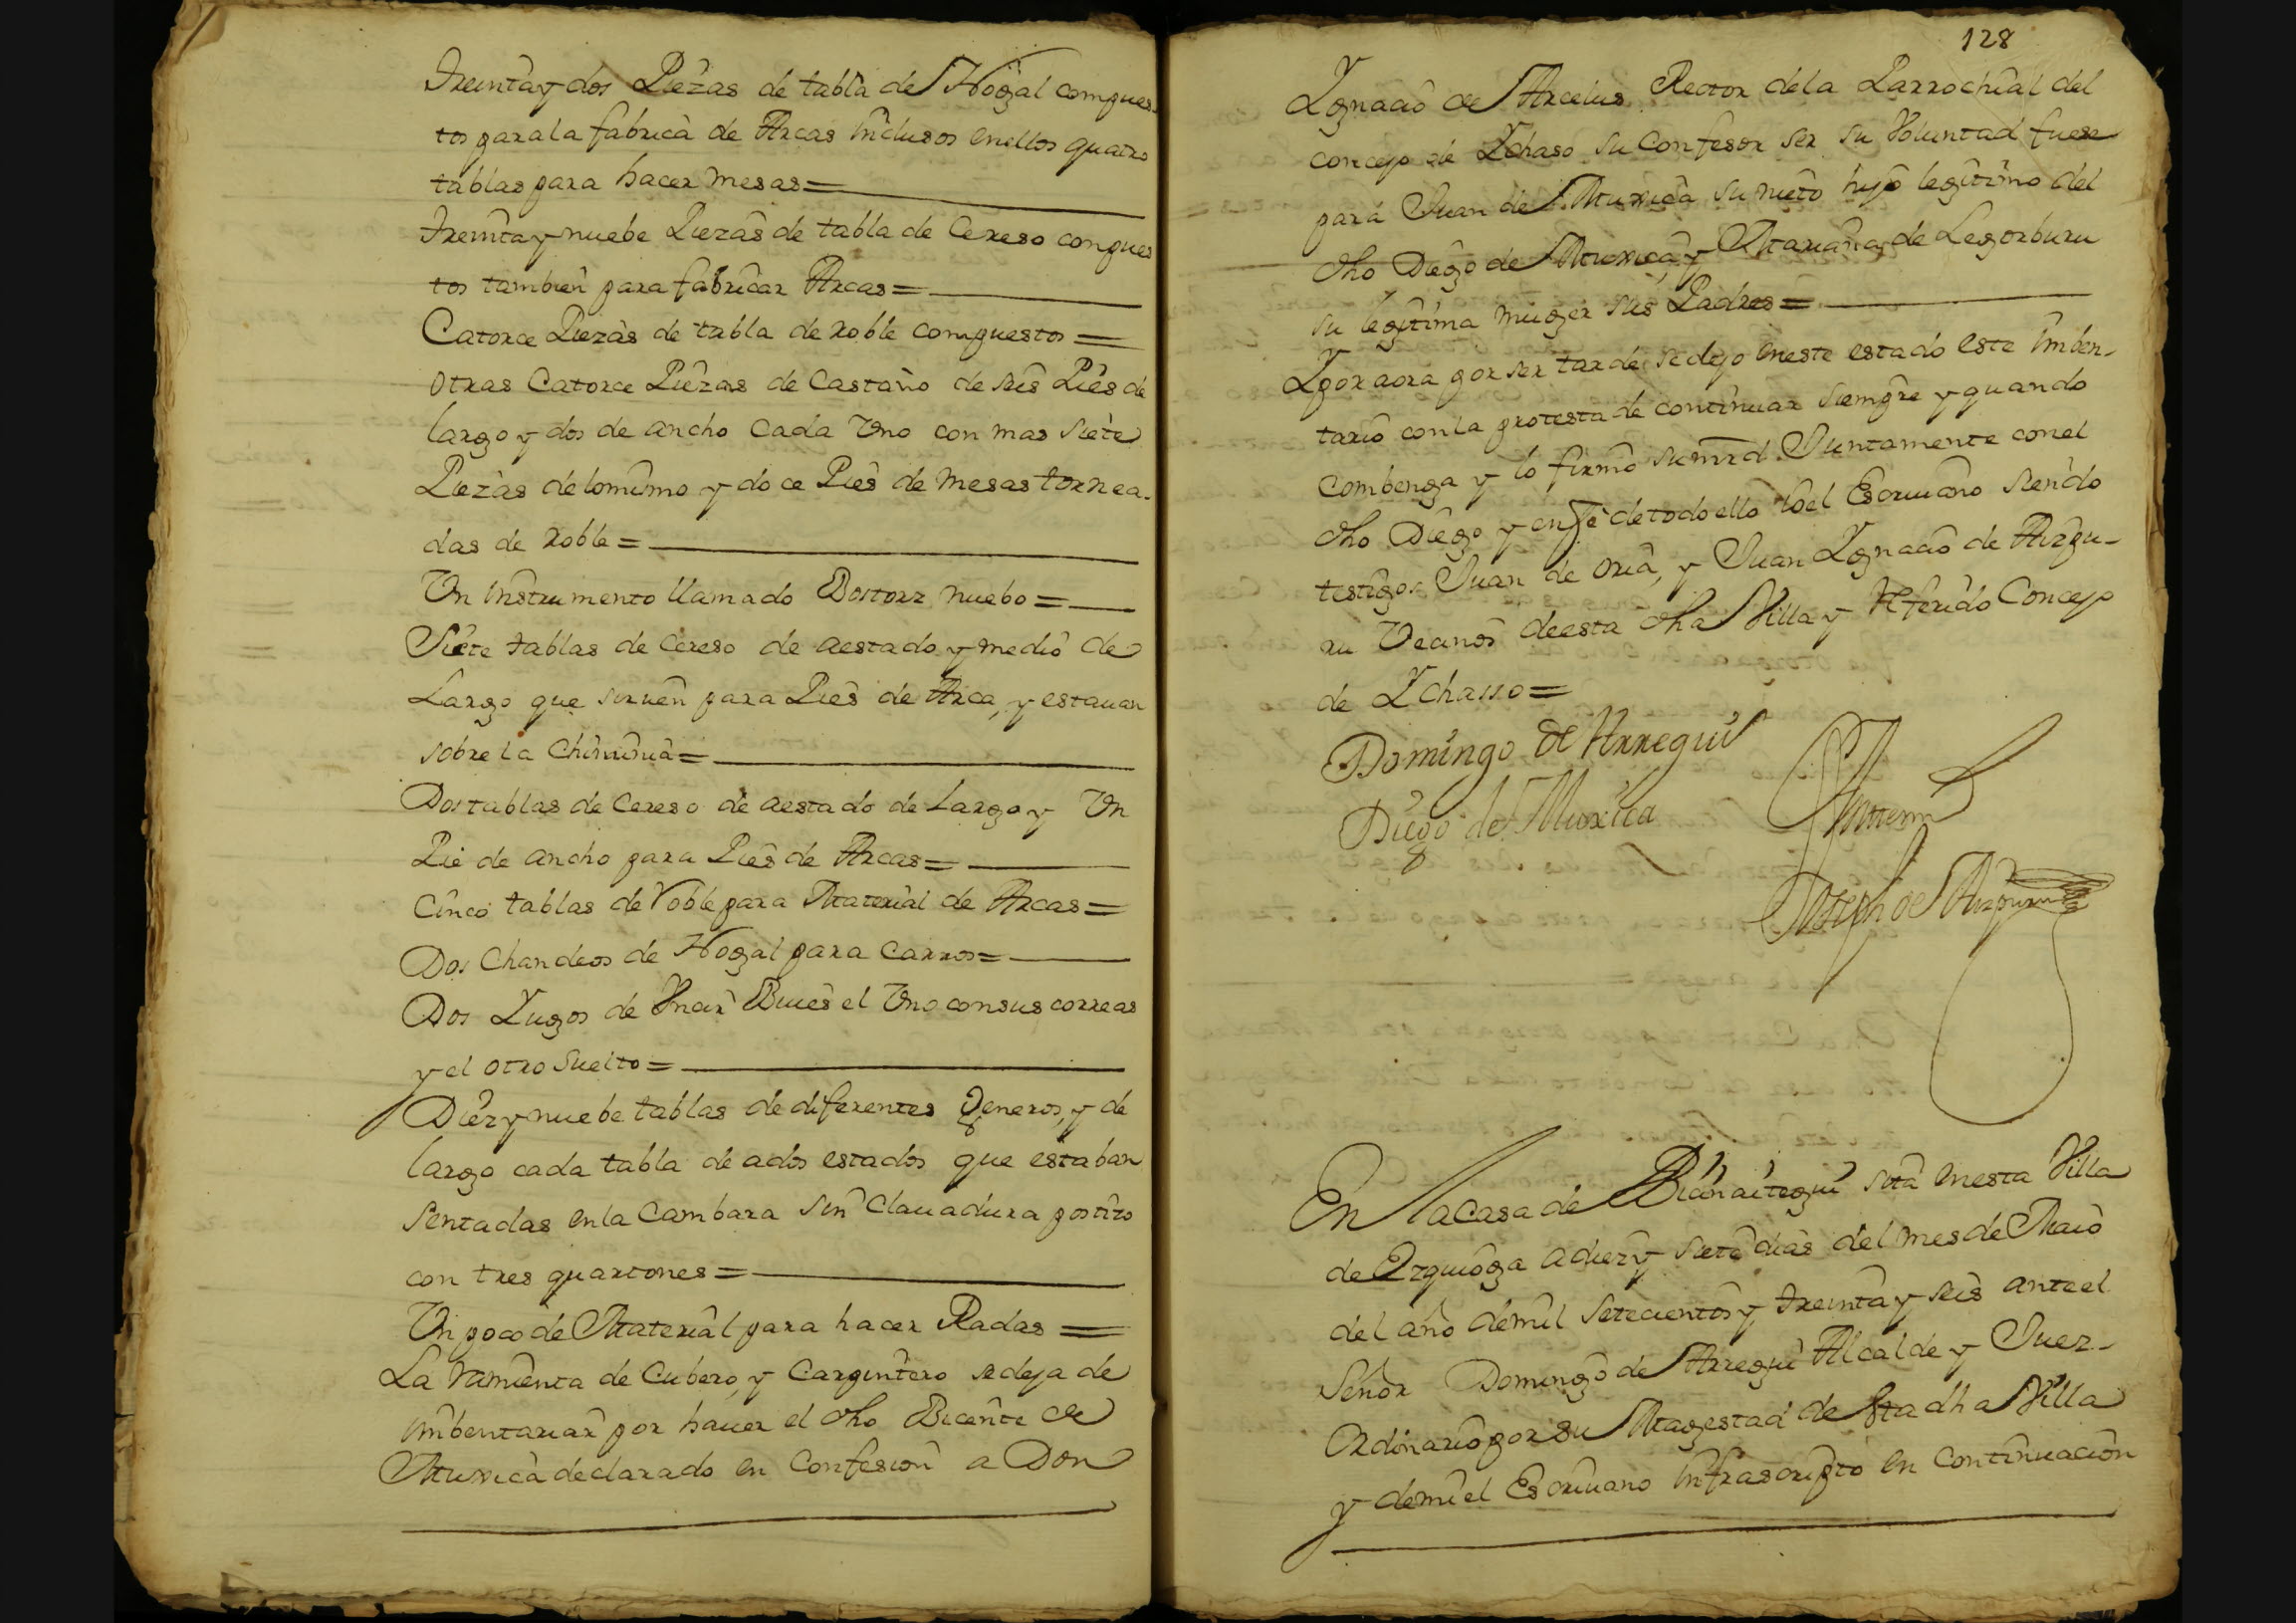 Treinta y dos Piezas de tabla de Nogal compues-
tos para la fabrica de Arcas inclusos en ellos quatro
tablas para hacer mesas =
Treinta y nuebe Piezas de tabla de Cereso conpues
tos tambien para fabricar Arcas =
Catorce Piezas de tabla de roble compuestos =
Otras Catorce Piezas de Castaño de seis Pies de
largo y dos de ancho Cada Uno con mas siete
Piezas de lo mismo y doce Pies de mesas tornea-
das de roble =
Un instrumento llamado Dostorz nuebo =
Siete tablas de Cereso de aestado y medio de
Largo que siruen para Pies de Arca, y estauan
sobre la Chiminia =
Dos tablas de Cereso de aestado de Largo y Un
Pie de ancho para Pies de Arcas =
Cinco tablas de roble para Material de Arcas =
Dos Chandeos de Nogal para Carros =
Dos Yugos de Unir Bueis el Uno con sus correas
y el otro suelto =
Diez y nuebe tablas de diferentes Generos, y de
largo cada tabla de ados estados que estaban
sentadas en la Cambara sin Clauadura postizo
con tres quartones =
Un poco de Material para hacer Radas =
La ramienta de Cubero, y Carpintero se deja de
imbentariar por hauer el dho Bicente de
Muxica declarado en Confesion a Don
128
Ygnacio de Arcelus Rector de la Parrochial del
concejo de Ychaso su Confesor ser su Voluntad fuese
para Juan de Muxica su nieto hijo legitimo del
dho Diego de Muxica, y Mariana de Legorburu
su legitima muger sus Padres =
Y por aora por ser tarde se dejo en este estado este imben-
tario con la protesta de continuar siempre y quando
combenga y lo firmo su mrd. Juntamente con el
dho Diego y en fe de todo ello Yo el Escriuano siendo
testigos Juan de Oria, y Juan Ygnacio de Aizpu-
ru Vecinos de esta dha Villa y referido Concejo
de Ychasso =
Domingo de Arregui
Diego de Muxica
Ante mi
Joseph de Aizpuru
En la Casa de Bicuñaitegui sita en esta Villa
de Ezquioga a diez y siete dias del mes de Maio
del año de mil setecientos y treinta y seis ante el
Señor Domingo de Arregui Alcalde y Juez
Ordinario por su Magestad de esta dha Villa
y de mi el Escriuano infrascripto en Continuacion